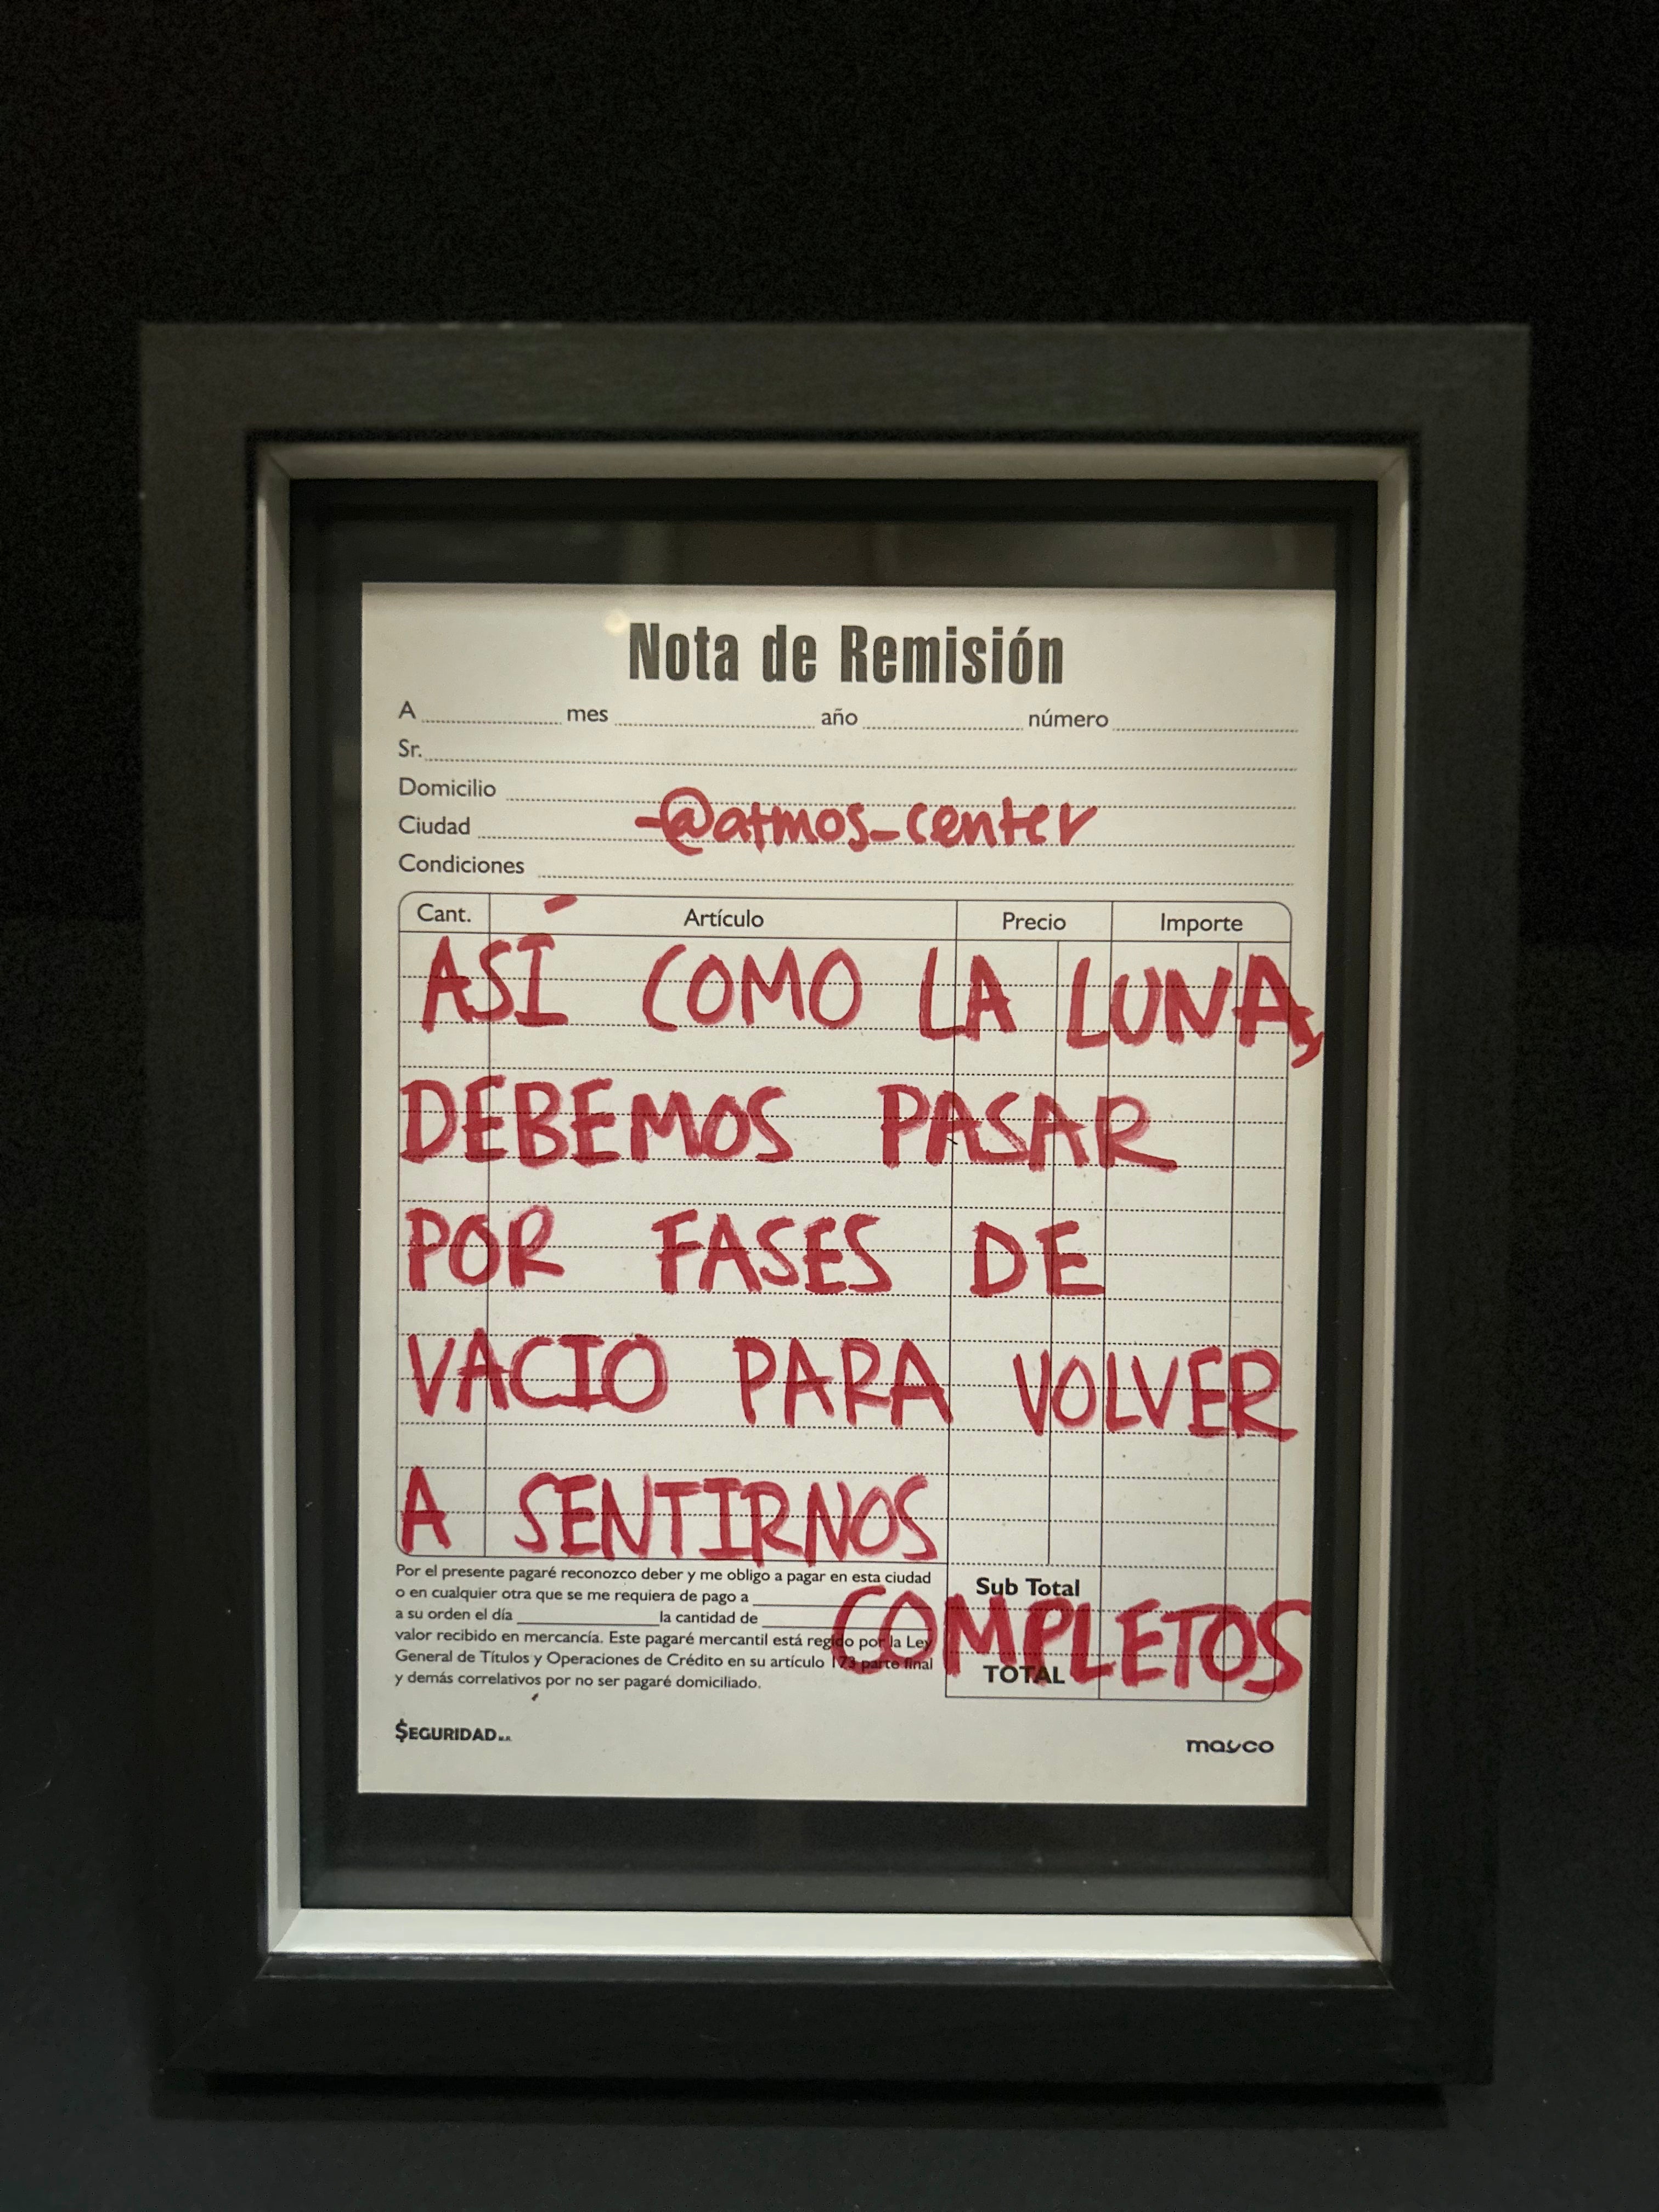 Nota de Remisión
A mes año número
Sr.
Domicilio
-@atmos_center
Ciudad
Condiciones
Cant. Artículo Precio Importe
ASÍ COMO LA LUNA,
DEBEMOS PASAR
POR FASES DE
VACIO PARA VOLVER
A SENTIRNOS
COMPLETOS
Por el presente pagaré reconozco deber y me obligo a pagar en esta ciudad
o en cualquier otra que se me requiera de pago a
a su orden el día la cantidad de
valor recibido en mercancía. Este pagaré mercantil está regido por la Ley
General de Títulos y Operaciones de Crédito en su artículo 173 parte final
y demás correlativos por no ser pagaré domiciliado.
Sub Total
TOTAL
$EGURIDAD
mayco